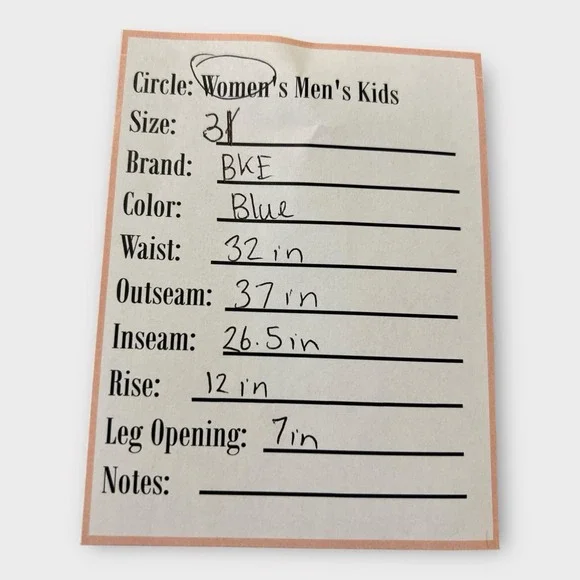 Circle: Women's Men's Kids
Size: 31
Brand: BKE
Color: Blue
Waist: 32 in
Outseam: 37 in
Inseam: 26.5 in
Rise: 12 in
Leg Opening: 7in
Notes: